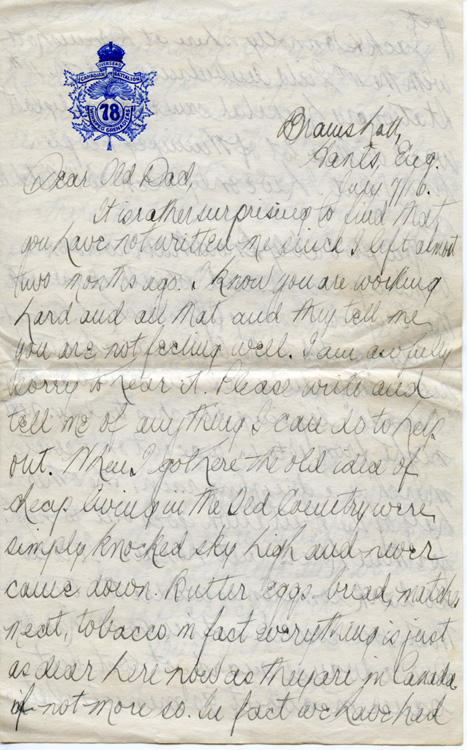 OVERSEAS
CANADIAN BATTALION
78
WINNIPEG GRENADIERS
Bramshott,
Hants, Eng.
July 7/16.
Dear Old Dad,
It is rather surprising to find that
you have not written me since I left almost
two months ago. I know you are working
hard and all that and they tell me
you are not feeling well. I am awfully
sorry to hear it. Please write and
tell me of anything I can do to help
out. When I got here the old idea of
cheap living in the Old Country were
simply knocked sky high and never
came down. Butter, eggs, bread, matches
meat, tobacco in fact everything is just
as dear here now as they are in Canada
if not more so. In fact we have had